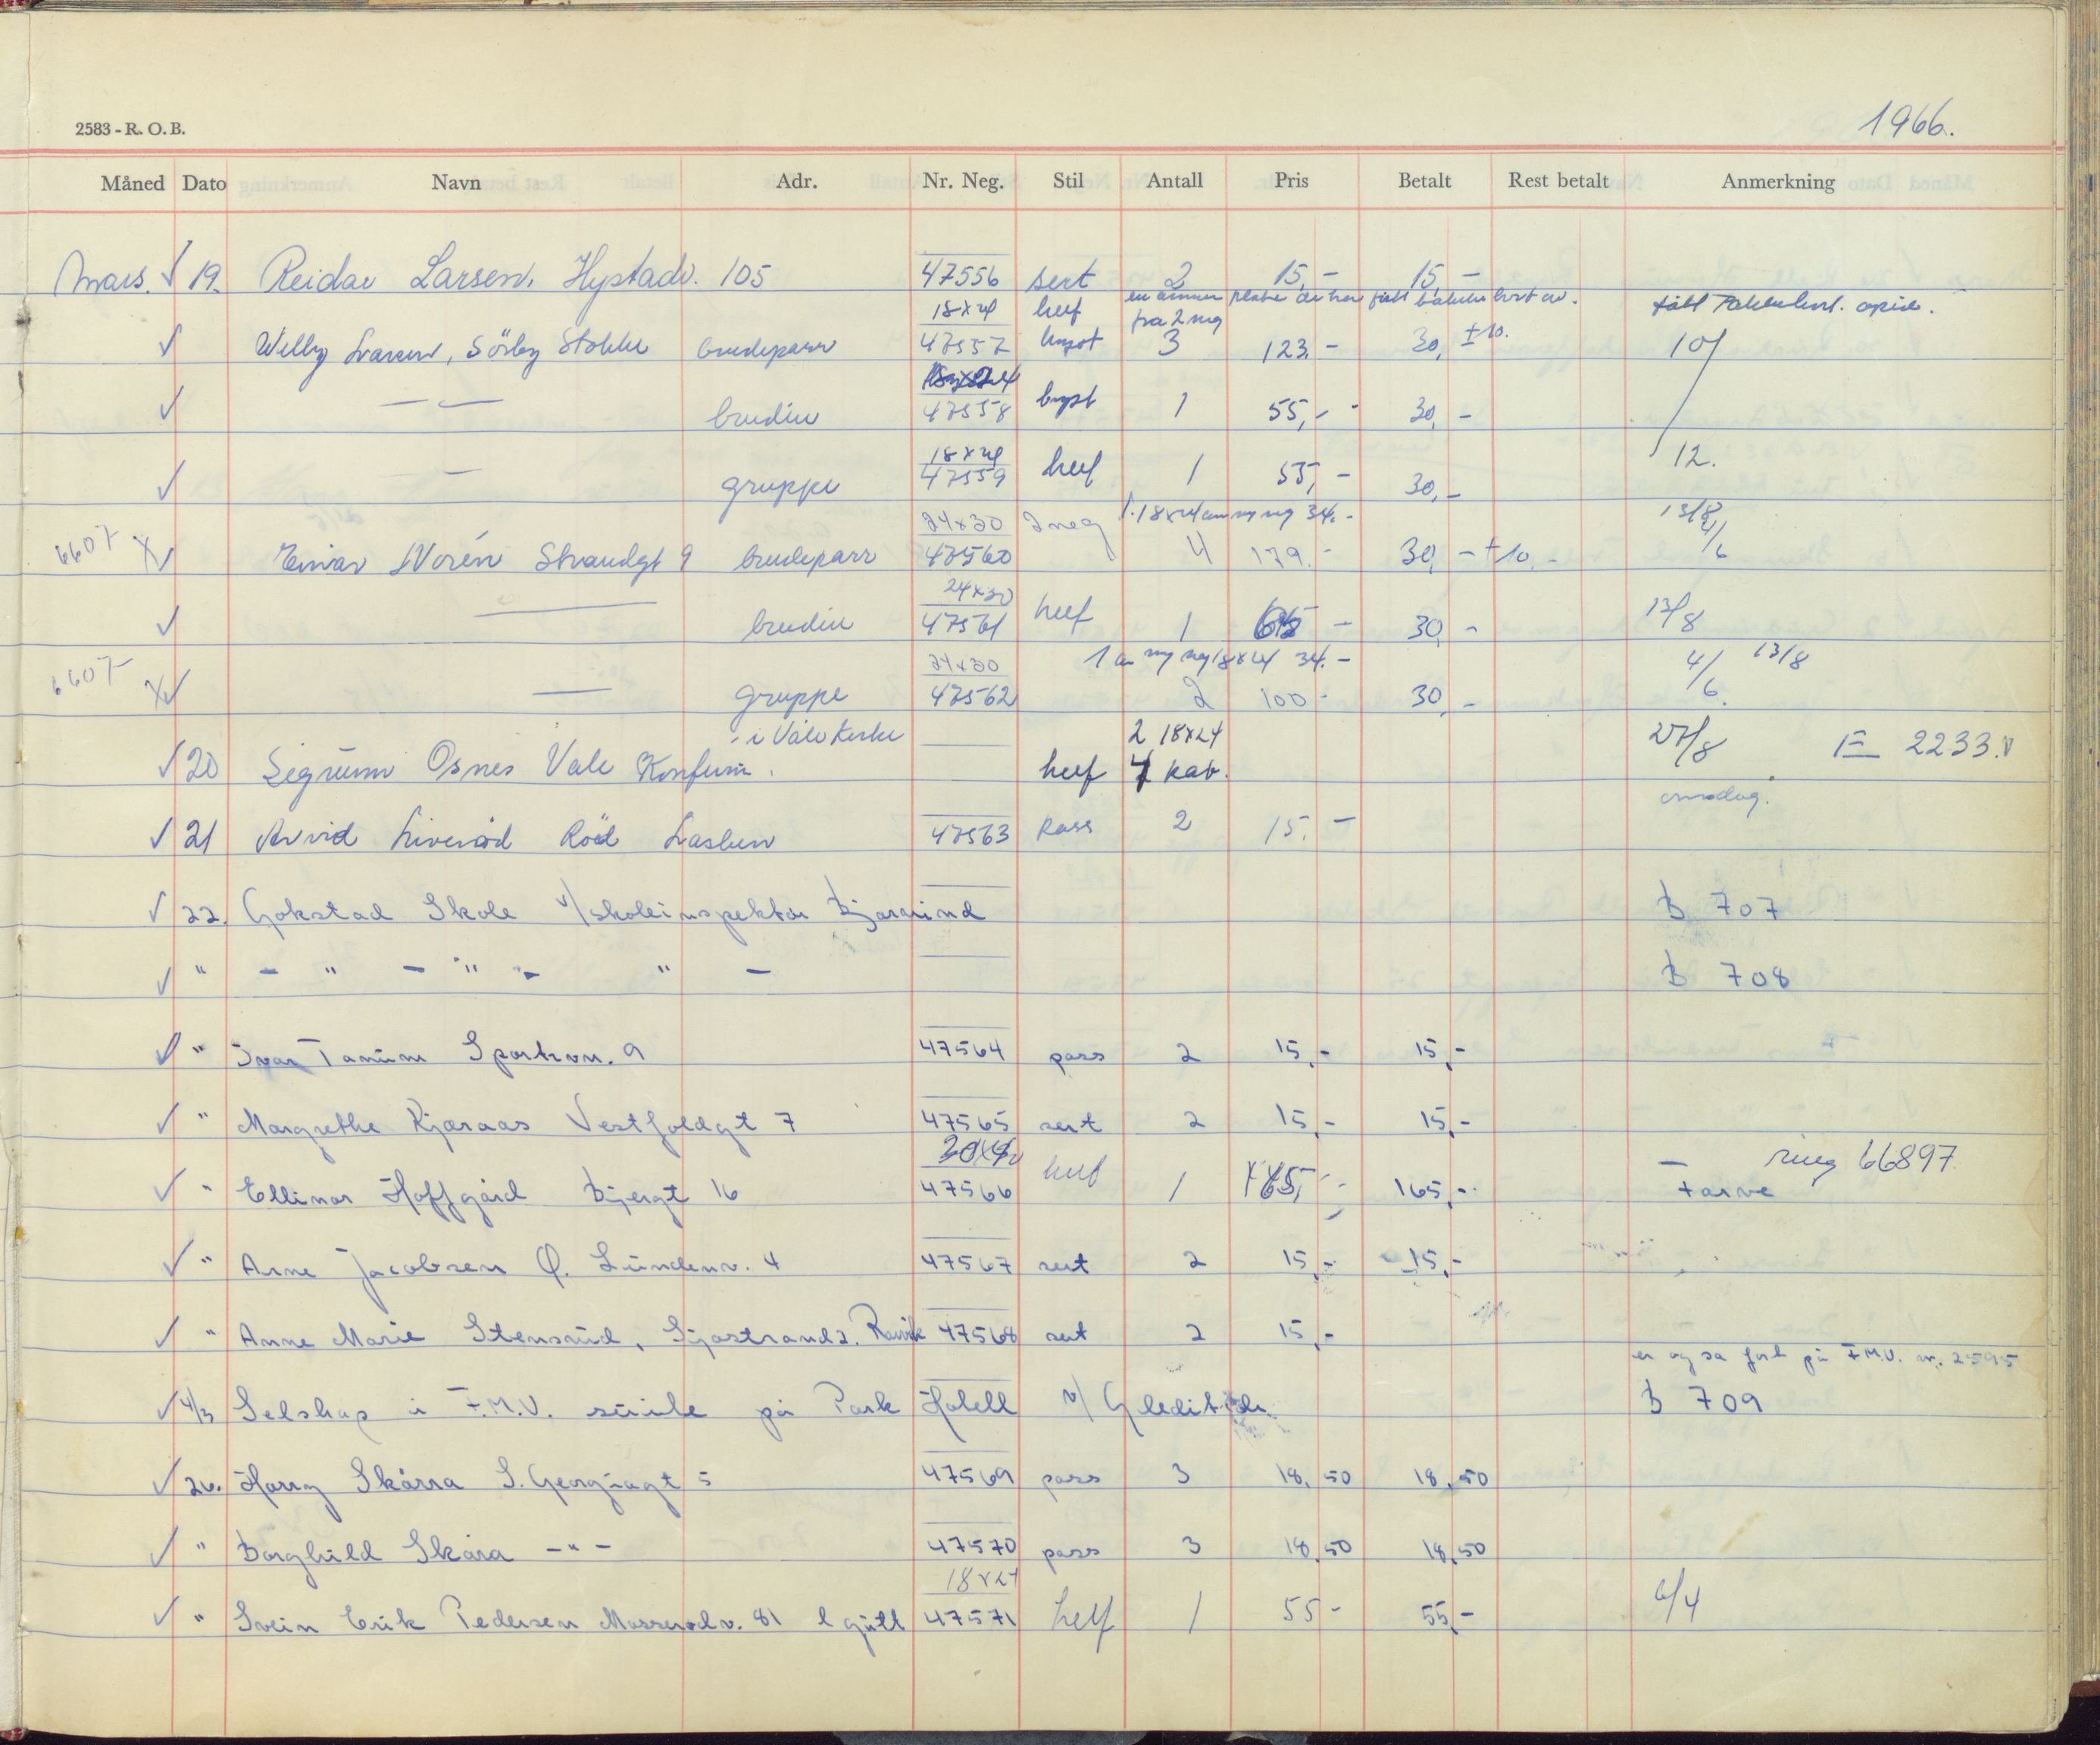 2583 - R. O. B.
1966.
Måned Dato Navn Adr. Nr. Neg. Stil Antall Pris Betalt Rest betalt Anmerkning
Mars. ✓ 19. Reidar Larsen, Hystadv. 105 47556 sert 2 15,- 15,-
18x24 helf fra 2 neg
✓ Sörby Stokke brudepar 47557 3 123,- 30,- +10. 10/
✓ — — brudin 47558 byst 1 55,- 30,-
18x24 12.
✓ — gruppe 47559 helf 1 55,- 30,-
24x30 2 neg 1. 18x24 34,- 13/8
6607 X✓ Einar Strandgt 9 brudepar 47560 4 179.- 30,- +10,- 4/6
24x30
✓ — brudin 47561 helf 1 65,- 30,- 13/8
24x30 1 ny neg 18x24 34.- 4/6 13/8
6607 X✓ — gruppe 47562 2 100- 30,-
i Våle Kirke 2 18x24 27/8 E 2233.v
✓ 20 Sigrunn Osnes Vale Konfirm. helf 4 kab.
onsdag.
✓ 21 Arvid Liverød Röd 47563 pass 2 15,-
✓ 22. Gokstad Skole v/ skoleinspektør B 707
✓ " - " - " - " - B 708
✓ " Ivar Tanum Sportsvn. 9 47564 pass 2 15,- 15,-
✓ " Margrethe Kjæraas Vestfoldgt 7 47565 sert 2 15,- 15,-
30x40 helf ring 66897
✓ " Ellinor Hoffgård Bjergt 16 47566 1 165,- 165,- Farve
✓ " Arne Jacobsen Ø. Lundenv. 4 47567 sert 2 15,- 15,-
✓ " Anne Marie Stensrud, Sjøstrand 2. 47568 sert 2 15,-
er og så ført på F.M.V. nr. 2595
✓ 4/3 Selskap i F.M.V. suite på Park Hotell v/ B 709
✓ 26. Harry Skårra S. Georgsgt 5 47569 pass 3 18,50 18,50
✓ " Borghild Skåra - " - 47570 pass 3 18,50 18,50
18x24
✓ " Svein Erik Pedersen Masserødv. 81 1 gutt 47571 helf 1 55- 55,- 6/4